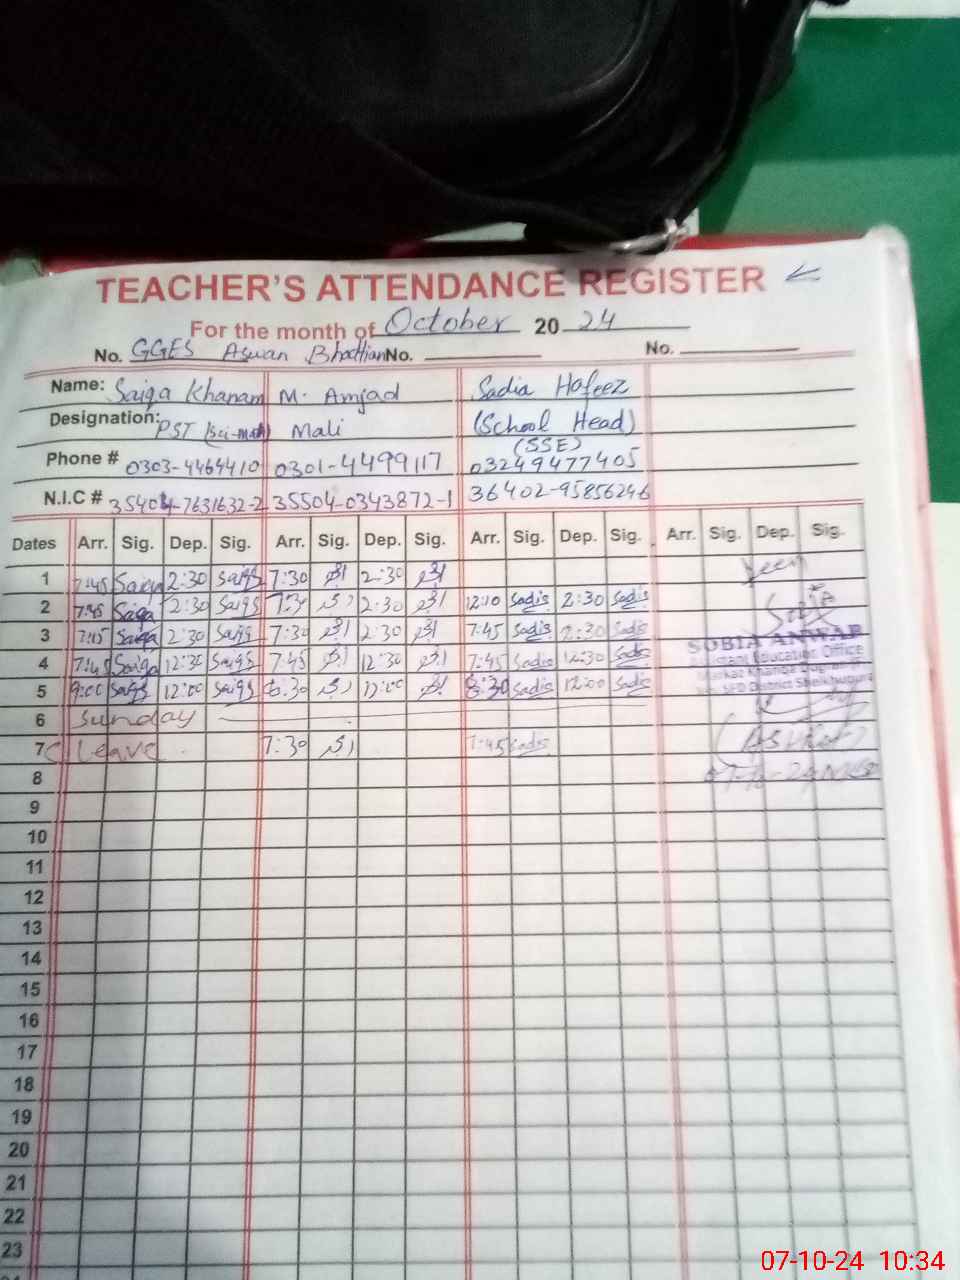 TEACHER'S ATTENDANCE REGISTER
For the month of October 20 24
No. GGES Aswan Bhattian No. No.
Name: Saiqa Khanam M. Amjad Sadia Hafeez
Designation: PST (Sci-Math) Mali (School Head)
(SSE)
Phone # 0303-4464410 0301-4499117 03249477405
N.I.C # 35404-7631632-2 35504-0343872-1 36402-95856246
Dates Arr. Sig. Dep. Sig. Arr. Sig. Dep. Sig. Arr. Sig. Dep. Sig. Arr. Sig. Dep. Sig.
1 7:45 Saiqa 2:30 Saiqa 7:30 2:30 Seen
2 7:45 Saiqa 2:30 Saiqa 7:30 2:30 12:10 Sadia 2:30 Sadia Sobia
3 7:45 Saiqa 2:30 Saiqa 7:30 2:30 7:45 Sadia 2:30 Sadia SOBIA ANWAR
Assistant Education Office
4 7:45 Saiqa 12:30 Saiqa 7:45 12:30 7:45 Sadia 12:30 Sadia Markaz
5 9:00 Saiqa 12:00 Saiqa 8:30 12:00 8:30 Sadia 12:00 Sadia District Sheikhupura
6 Sunday
7 Leave 7:30 7:45 Sadia
8
9
10
11
12
13
14
15
16
17
18
19
20
21
22
23
07-10-24 10:34